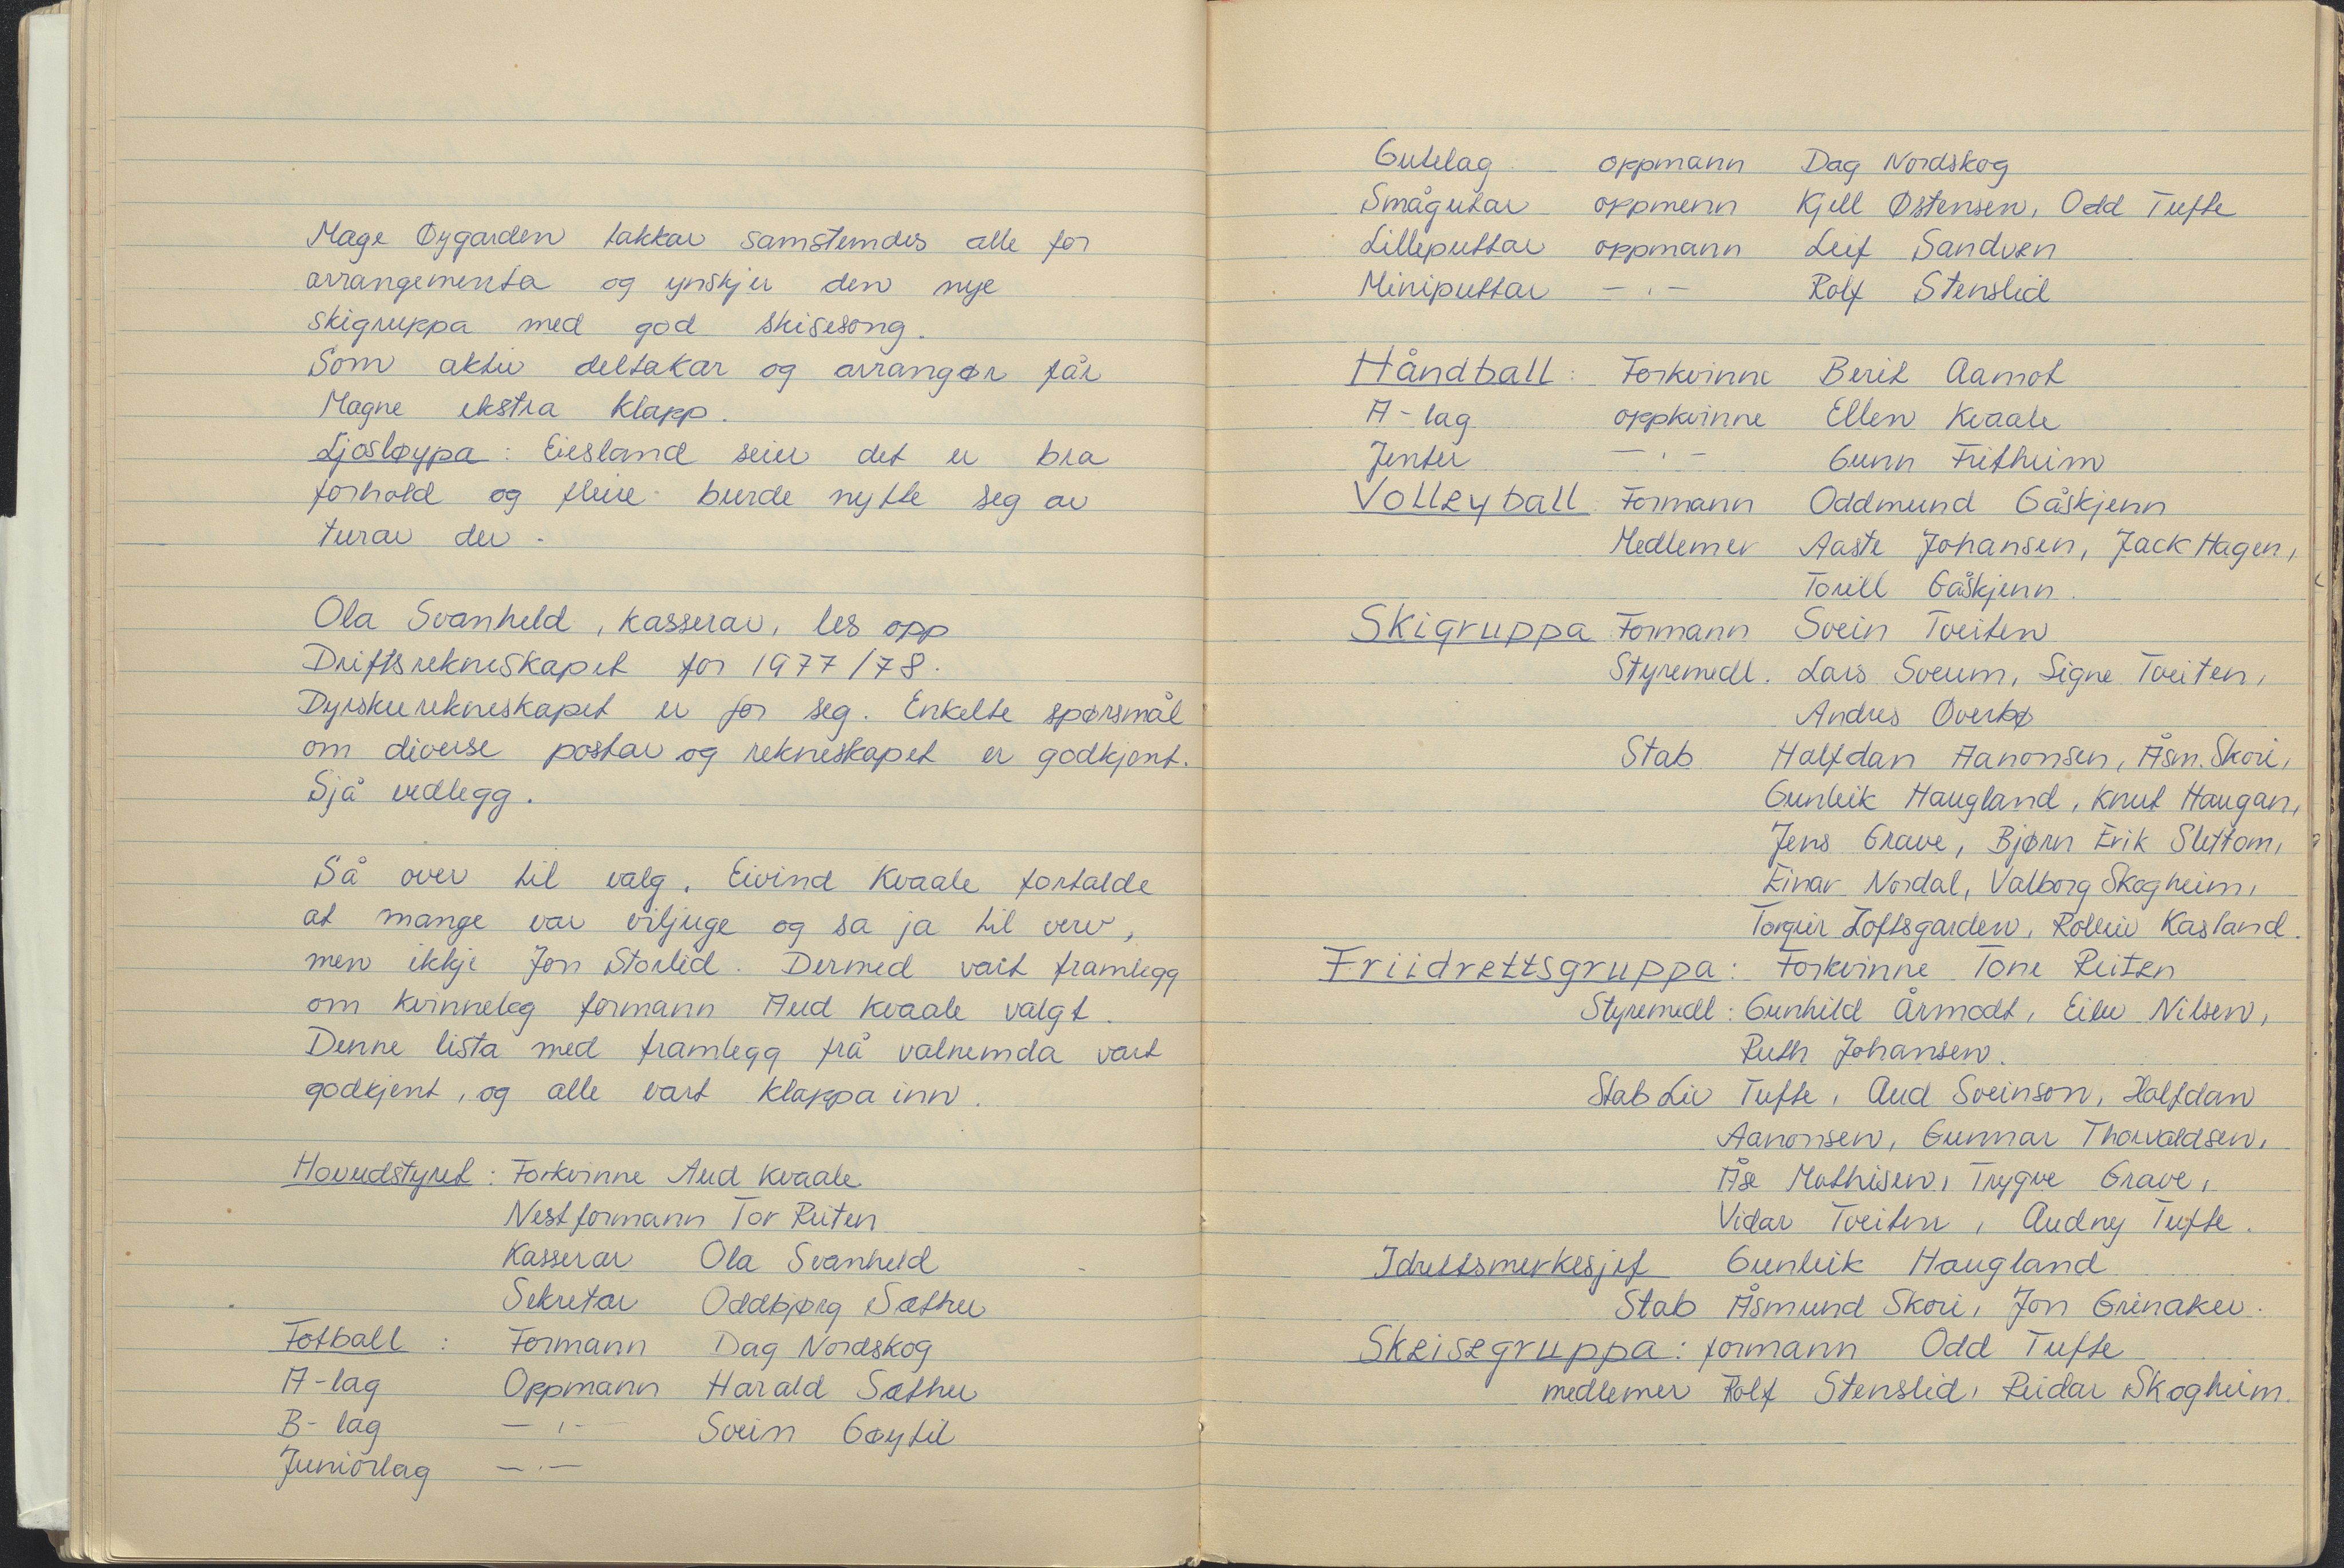 Mage Øygarden takkar samstemdes alle for
arrangementa og ynskjer den nye
skigruppa med god skisesong.
Som aktiv deltakar og arrangør får
Magne ekstra klapp.
Ljosløypa : Eiesland seier det er bra
forhold og fleire burde nytte seg av
turar der.
Ola Svanheld, kasserar, les opp
Driftsrekneskapet for 1977/78.
Dyrskurekneskapet er for seg. Enkelte spørsmål
om diverse postar og rekneskapet er godkjent.
Sjå vedlegg.
Så over til valg. Eivind Kvaale fortalde
at mange var viljuge og sa ja til verv,
men ikkje Jon Storlid. Dermed vart framlegg
om kvinneleg formann Aud Kvaale valgt.
Denne lista med framlegg frå valnemda vart
godkjent, og alle vart klappa inn.
Hovudstyret : Forkvinne Aud Kvaale
Nestformann Tor Reiten
Kasserar Ola Svanheld
Sekretær Oddbjørg Sæther
Fotball : Formann Dag Nordskog
A-lag Oppmann Harald Sæther
B-lag — " — Svein Gøytil
Juniorlag — " —
Gutelag oppmann Dag Nordskog
Smågutar oppmenn Kjell Østensen, Odd Tufte
Lilleputtar oppmann Leif Sandven
Miniputtar — " — Rolf Stenslid
Håndball : Forkvinne Berit Aamot
A-lag oppkvinne Ellen Kvaale
Jenter — " — Gunn Fritheim
Volleyball Formann Oddmund Gåskjenn
Medlemer Aaste Johansen, Jack Hagen,
Torill Gåskjenn.
Skigruppa Formann Svein Tveiten
Styremedl. Lars Sveum, Signe Tveiten,
Andres Overbø
Stab Halfdan Aanonsen, Åsm. Skori,
Gunleik Haugland, Knut Haugan,
Jens Grave, Bjørn Erik Slettom,
Einar Nordal, Valborg Skogheim,
Torgeir Loftsgarden, Rolleiv Kasland.
Friidrettsgruppa : Forkvinne Tone Reiten
Styremedl : Gunhild Årmodt, Eilev Nilsen,
Ruth Johansen.
Stab Liv Tufte, Aud Sveinson, Halfdan
Aanonsen, Gunnar Thorvaldsen,
Åse Mathisen, Trygve Grave,
Vidar Tveiten, Audny Tufte.
Idrettsmerkesjef Gunleik Haugland
Stab Åsmund Skori, Jon Grinaker.
Skeisegruppa : formann Odd Tufte
medlemer Rolf Stenslid, Reidar Skogheim.